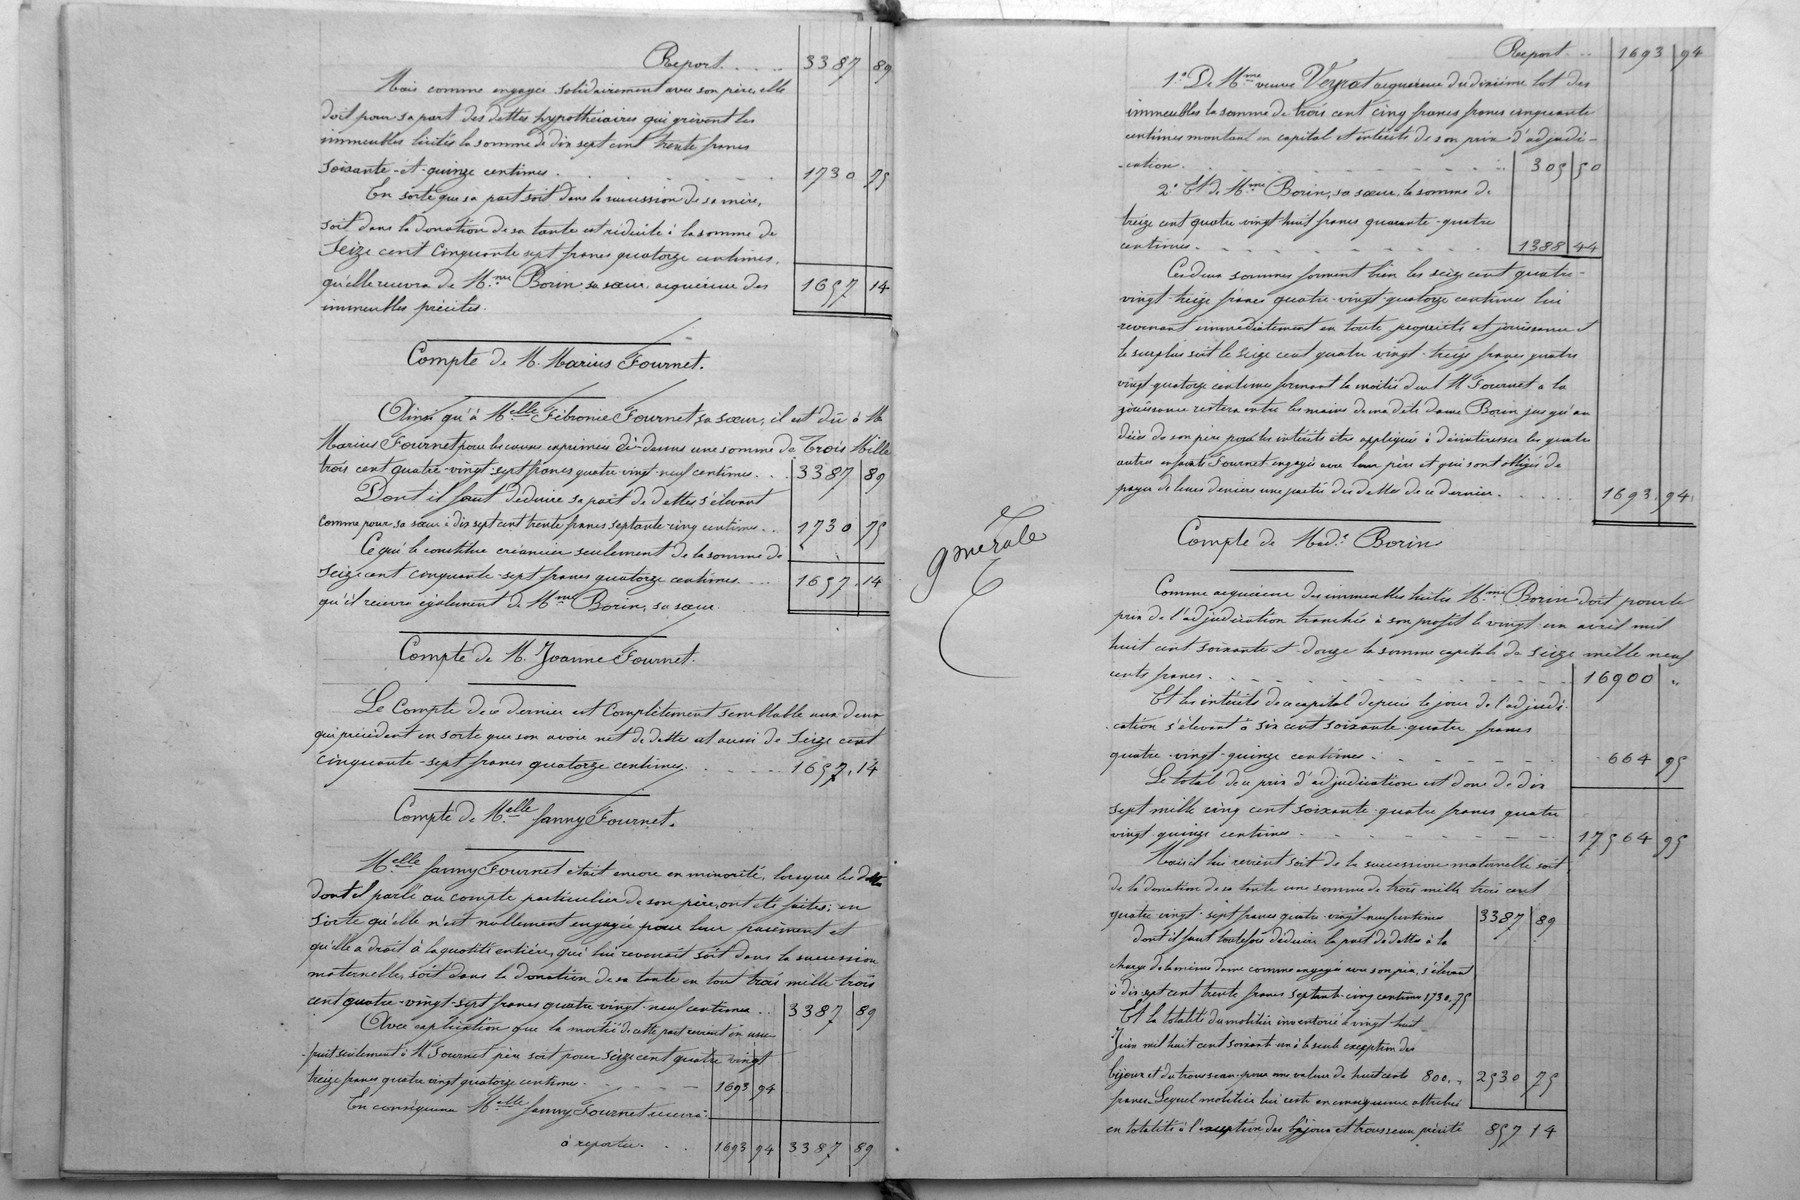 Report.... 3387 89
Mais comme engagée solidairement avec son père, elle
doit pour sa part des dettes hypothécaires qui grèvent les
immeubles licités la somme de dix sept cent trente francs
soixante-et-quinze centimes. 1730 75
En sorte que sa part soit dans la succession de sa mère,
soit dans la donation de sa tante est réduite à la somme de
Seize cent Cinquante sept francs quatorze centimes,
qu'elle recevra de Mme Borin sa sœur acquéreur des 1657 14
immeubles précités.
Compte de M. Marius Fournet.
Ainsi qu'à Melle Fébronie Fournet, sa sœur, il est dû à M.
Marius Fournet pour les causes exprimées ci-dessus une somme de Trois Mille
trois cent quatre-vingt-sept francs quatre-vingt-neuf centimes... 3387 89
Dont il faut déduire sa part de dettes s'élevant
comme pour sa sœur à dix sept cent trente francs septante-cinq centimes.. 1730 75
Ce qui le constitue créancier seulement de la somme de
Seize cent cinquante-sept francs quatorze centimes.... 1657.14
qu'il recevra également de Mme Borin, sa sœur.
Compte de M. Joanne Fournet.
Le Compte de ce dernier est Complètement semblable aux deux
qui précèdent en sorte que son avoir net de dettes est aussi de Seize cent
cinquante-sept francs quatorze centimes. 1657,14
Compte de Melle fanny Fournet.
Melle fanny Fournet était encore en minorité, lorsque les dettes
dont il parlé au compte particulier de son père, ont été faites; en
sorte qu'elle n'est nullement engagée pour leur paiement et
qu'elle a droit à la quotité entière, qui lui revenait soit dans la succession
maternelle, soit dans la donation de sa tante en tout trois mille trois
cent quatre-vingt-sept francs quatre-vingt-neuf centimes.. 3387 89
Avec explication que la moitié de cette part revient en usu-
-fruit seulement à M. Fournet père soit pour seize cent quatre vingt
treize francs quatre vingt quatorze centimes. 1693 94
En conséquence Melle fanny Fournet recevra:
à reporter. 1693 94 3387 89
générale
Report... 1693 94
1° De Mme veuve acquéreur du dixième lot des
immeubles la somme de trois cent cinq francs francs cinquante
centimes montant en capital et intérêts de son prix d'adjudi-
-cation. 305 50
2° Et de Mme Borin, sa sœur, la somme de
treize cent quatre vingt huit francs quarante-quatre
centimes. 1388 44
Ces deux sommes forment bien les seize cent quatre-
vingt-treize francs quatre-vingt-quatorze centimes lui
revenant immédiatement en toute propriété et jouissance et
le surplus soit le seize cent quatre vingt-treize francs quatre
vingt-quatorze centimes formant la moitié dont M. Fournet a la
jouissance restera entre les mains de ma dete dame Borin jusqu'au
décès de son père pour les intérêts être appliqués à désintéresser les quatre
autres enfants Fournet engagés avec leur père et qui sont obligés de
payer de leurs deniers une partie des dettes de ce dernier. 1693.94.
Compte de Made Borin
Comme acquéreur des immeubles licités Mme Borin doit pour le
prix de l'adjudication tranchée à son profit le vingt-un avril mil
huit cent soixante et douze la somme capitale de seize mille neuf
cents francs. 16900 "
Et les intérêts de ce capital depuis le jour de l'adjudi-
-cation s'élevant à six cent soixante-quatre francs
quatre-vingt-quinze centimes. 664 95
Le total de ce prix d'adjudication est donc de dix
sept mille cinq cent soixante-quatre francs quatre
vingt-quinze centimes 17564 95
Mais il lui revient soit de la succession maternelle soit
de la donation de sa tante une somme de trois mille trois cent
quatre vingt-sept francs quatre-vingt-neuf centimes 3387 89
dont il faut toutefois déduire la part de dettes à la
charge de la même dame comme engagée avec son père, s'élevant
à dix sept cent trente francs septante-cinq centimes 1730.75
Et la totalité du mobilier inventorié le vingt huit
Juin mil huit cent soixante un à la seule exception des
bijoux et du trousseau pour une valeur de huit cents 800.. 2530 75
francs. Lequel mobilier lui reste en conséquence attribué
en totalité à l'exception des bijoux et trousseau précité 857 14